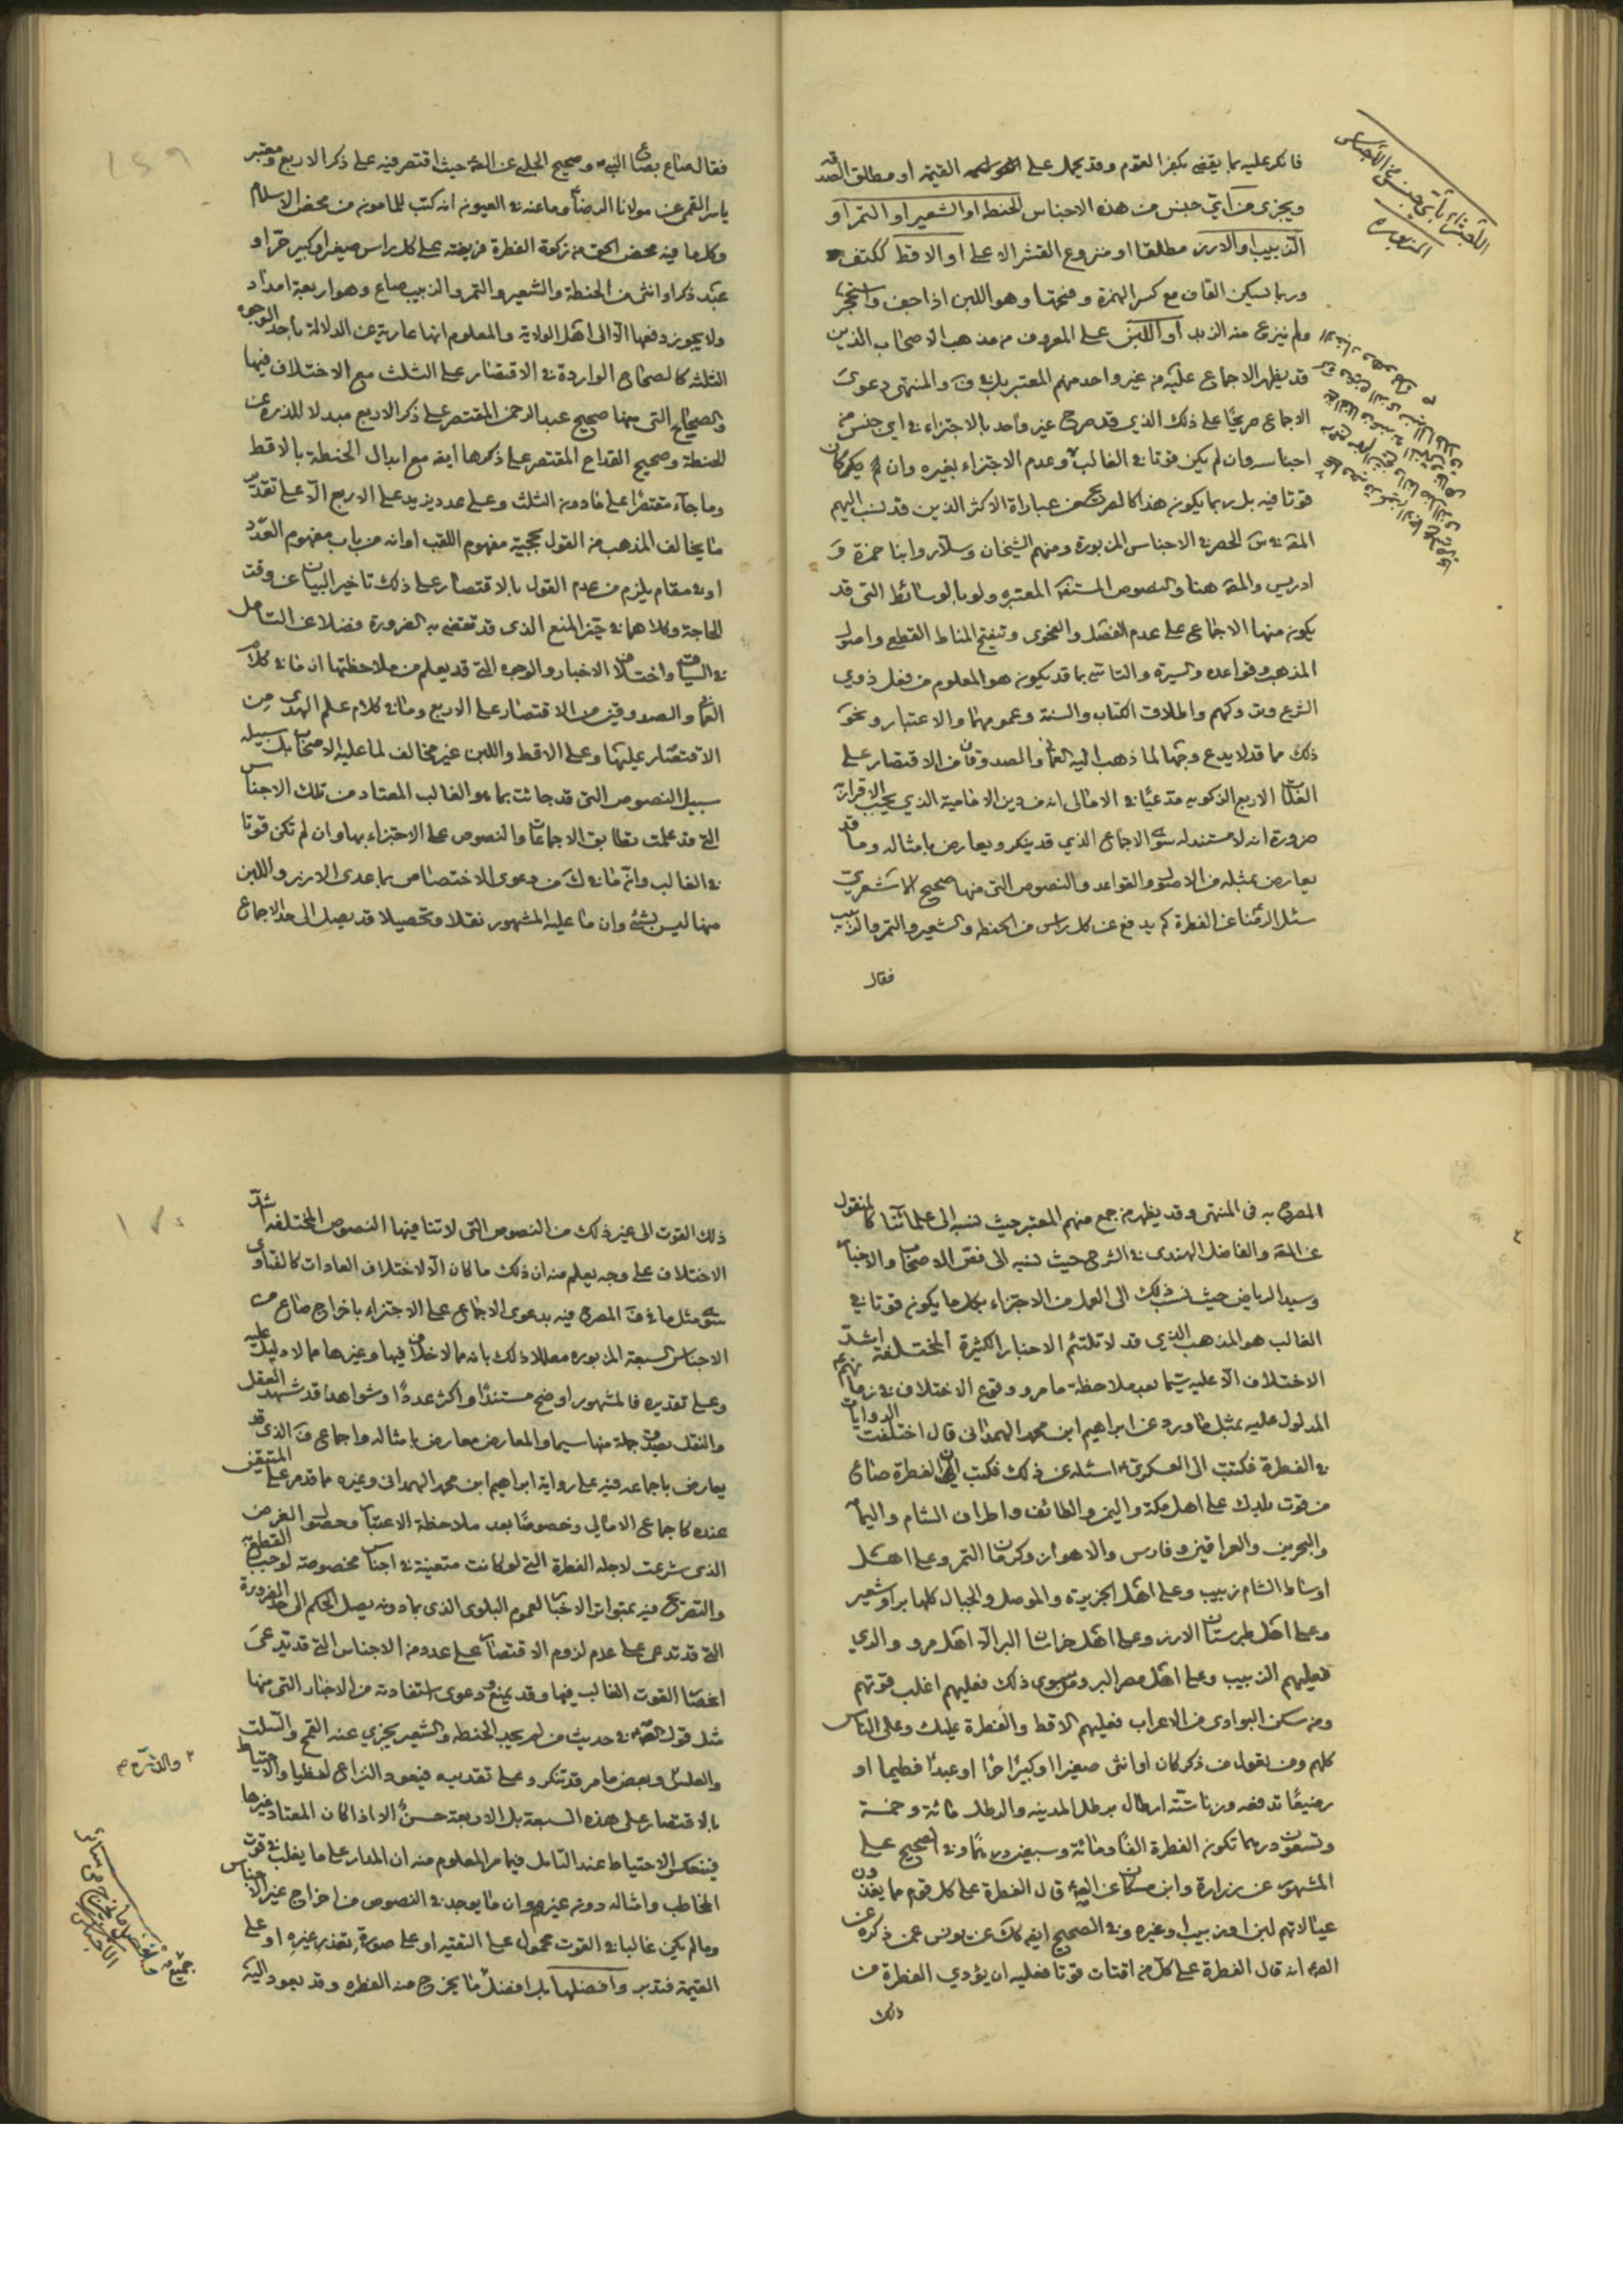 فانكر عليه بما يقضى بكفر القوم وقد يحمل على القيمة او مطلق الصدقة
ويجزى من اتى جنس من هذه الاجناس الحنطة او الشعير او التمر او
الزبيب او الارز مطلقا او منزوع القشر الاعلى او الاقط ككتف
وربما يسكن القاف مع كسر الهمزة وفتحها وهو اللبن اذا جف واستحجر
ولم ينزع منه الزبد او اللبن على المعروف من مذهب الاصحاب الذين
قد يظهر الاجماع عليه من غير واحد منهم المعتبر بل في ف والمنتهى دعوى
الاجماع صريحا على ذلك الذي قد صرح غير واحد بالاجتزاء في اى جنس من
اجناسه وان لم يكن قوتا في الغالب وعدم الاجتزاء بغيره وان كان
قوتا فيه بل ربما يكون هذا كالصريح من عبارة الاكثر الذين قد نسب اليهم
المقدس الحصر في الاجناس المزبورة ومنهم الشيخان وسلار وابنا حمزة و
ادريس والمصنف هنا والنصوص المستفيضة المعتبره ولو بالوسائط التى قد
يكون منها الاجماع على عدم الفصل والفحوى وتنقيح المناط القطعى واصول
المذهب وقواعده والسيرة والتاسى بما قد يكون هو المعلوم من فعل ذوي
الشرع وتروكهم واطلاق الكتاب والسنة وعمومهما والاعتبار ونحو
ذلك مما قد لا يدع وجها لما ذهب اليه العمانى والصدوقان من الاقتصار على
الغلات الاربع الذكوية مدعيا في الامالى انه من دين الامامية الذي يجب الاقرار به
ضرورة انه لا مستند له سوى الاجماع الذي قد ينكر ويعارض بامثاله وما قد
يعارض بمثله من الاصول والقواعد والنصوص التى منها صحيح الاشعري
سئل الرضا عن الفطرة كم يدفع عن كل راس من الحنطه والشعير والتمر والزبيب
فقال
الاجتزاء باى جنس من الاجناس
المزبورة
فقال صاع بصاع النبى وصحيح الحلبى عن الصه حيث اقتصر فيه على ذكر الاربع ومعتبر
ياسر القمى عن مولانا الرضا وما عنه في العيون انه كتب للمامون من محض الاسلام
وكل ما فيه محض الحق من زكوة الفطرة فريضة على كل راس صغير او كبير حر او
عبد ذكر او انثى من الحنطة والشعير والتمر والزبيب صاع وهو اربعة امداد
ولا يجوز دفعها الا الى اهل الولاية والمعلوم انها عارية عن الدلالة باحد الوجوه
الثلثه كالصحاح الواردة في الاقتصار على الثلث مع الاختلاف فيها
والصحاح التى منها صحيح عبد الرحمن المقتصر على ذكر الاربع مبدلا للذرة عن
الحنطة وصحيح القداح المقتصر على ذكرها ايضا مع ابدال الحنطة بالاقط
وما جاء مقتصرا على ما دون الثلث وعلى عدد يزيد على الاربع الا على تقدير
ما يخالف المذهب من القول بحجية مفهوم اللقب او انه من باب مفهوم العدد
او في مقام يلزم من عدم القول بالاقتصار على ذلك تاخير البيان عن وقت
الحاجة وكلاهما في حيز المنع الذى قد تقضى به الضرورة فضلا عن التامل
في السياق واختلاف الاخبار والوجوه التى قد يعلم من ملاحظتها ان ما في كلام
العمانى والصدوقين من الاقتصار على الاربع وما في كلام علم الهدى من
الاقتصار عليها وعلى الاقط واللبن غير مخالف لما عليه الاصحاب بل سبيله
سبيل النصوص التى قد جائت بما هو الغالب المعتاد من تلك الاجناس
التى قد علمت تطابق الاجماعات والنصوص على الاجتزاء بها وان لم تكن قوتا
في الغالب وانّ ما في ك من دعوى الاختصاص بما عدى الارز واللبن
منها ليس بشئ وان ما عليه المشهور نقلا وتحصيلا قد يصل الى حد الاجماع
المصرح به فى المنتهى وقد يظهر من جمع منهم المعتبر حيث نسبه الى علمائنا كالمنقول
عن المقه والفاضل الهندى في الشرح حيث نسبه الى نص الاصحاب والاخبار
وسيد الرياض حيث نسب ذلك الى العمل من الاجتزاء بكل ما يكون قوتا في
الغالب هو المذهب الذي قد لا تلتئم الاخبار الكثيرة المختلفة اشد
الاختلاف الا عليه سيما بعد ملاحظة ما مر ووقوع الاختلاف في زمانهم
المدلول عليه بمثل ما ورد عن ابراهيم ابن محمد الهمدانى قال اختلفت الروايات
في الفطرة فكتبت الى العسكرى اسئله عن ذلك فكتب ان الفطرة صاع
من قوت بلدك على اهل مكة واليمن والطائف واطراف الشام واليمامة
والبحرين والعراقين وفارس والاهواز وكرمان التمر وعلى اهل
اوساط الشام زبيب وعلى اهل الجزيرة والموصل والجبال كلها بر او شعير
وعلى اهل طبرستان الارز وعلى اهل خراسان البر الا اهل مرو والري
فعليهم الزبيب وعلى اهل مصر البر وما سوى ذلك فعليهم اغلب قوتهم
ومن سكن البوادى من الاعراب فعليهم الاقط والفطرة عليك وعلى الناس
كلهم ومن تعول من ذكر كان او انثى صغيرا او كبيرا حرا او عبدا فطيما او
رضيعا تدفعه وزنا ستة ارطال برطل المدينه والرطل مائة وخمسة
وتسعون درهما تكون الفطرة الفا ومائة وسبعين درهما وفي الصحيح على
المشهور عن زرارة وابن مسكان عن الصه قال الفطرة على كل قوم مما يغذون
عيالاتهم لبن او زبيب او غيره وفي الصحيح ايضا كك عن يونس عمن ذكره عن
الصه انه قال الفطرة على كل من اقتات قوتا فعليه ان يؤدي الفطرة من
ذلك
ذلك القوت الى غير ذلك من النصوص التى لا تنافيها النصوص المختلفه اشد
الاختلاف على وجه يعلم منه ان ذلك ما كان الا لاختلاف العادات كالفتاوى
سوى مثل ما في ف المصرح فيه بدعوى الاجماع على الاجتزاء باخراج صاع من
الاجناس السبعة المزبوره معللا ذلك بانه مما لا خلاف فيها وغيرها مما لا دليل عليه
وعلى تقديره فالمشهور اوضح مستندا واكثر عددا وشواهدا قد شهد العقل
والنقل بصدق جملة منها سيما والمعارض معارض بامثاله واجماع ف الذى قد
يعارض باجماعه فيه على رواية ابراهيم ابن محمد الهمدانى وغيره مما قدم على المتيقن
عنده كاجماع الامالى وخصوصا بعد ملاحظة الاعتبار وحصول الغرض
الذى شرعت لاجله الفطرة التى لو كانت متعينة في اجناس مخصوصة لوجب القطع به
والتصريح فيه بمتواتر الاخبار لعموم البلوى الذى بما دونه يصل الحكم الى حد الضرورة
التى قد تدعى على عدم لزوم الاقتصار على عدد من الاجناس التى قد يدعى
انحصار القوت الغالب فيها وقد يمنع دعوى استفادته من الاخبار التى منها
مثل قول الصه في حديث من لم يجد الحنطه والشعير يجزي عنه القمح والسلت
والعلس وبعض ما مر قد تنكر وعلى تقديره فيعود النزاع لفظيا والاحتياط
بالاقتصار على هذه السبعة بل الاربعة حسن الا اذا كان المعتاد غيرها
فينعكس الاحتياط عند التامل فيما مر المعلوم منه ان المدار على ما يغلب في قوت
المخاطب وامثاله دون غيرهم وان ما يوجد في النصوص من اخراج غير الاجناس
وما لم يكن غالبا في القوت محمول على التقيه او على صورة تعذر غيره او على
القيمة فتدبر وافضلها بل افضل ما يخرج منه الفطره وقد يعود اليه
والذرة
جميع
افضل ما يخرج من سائر
الاجناس